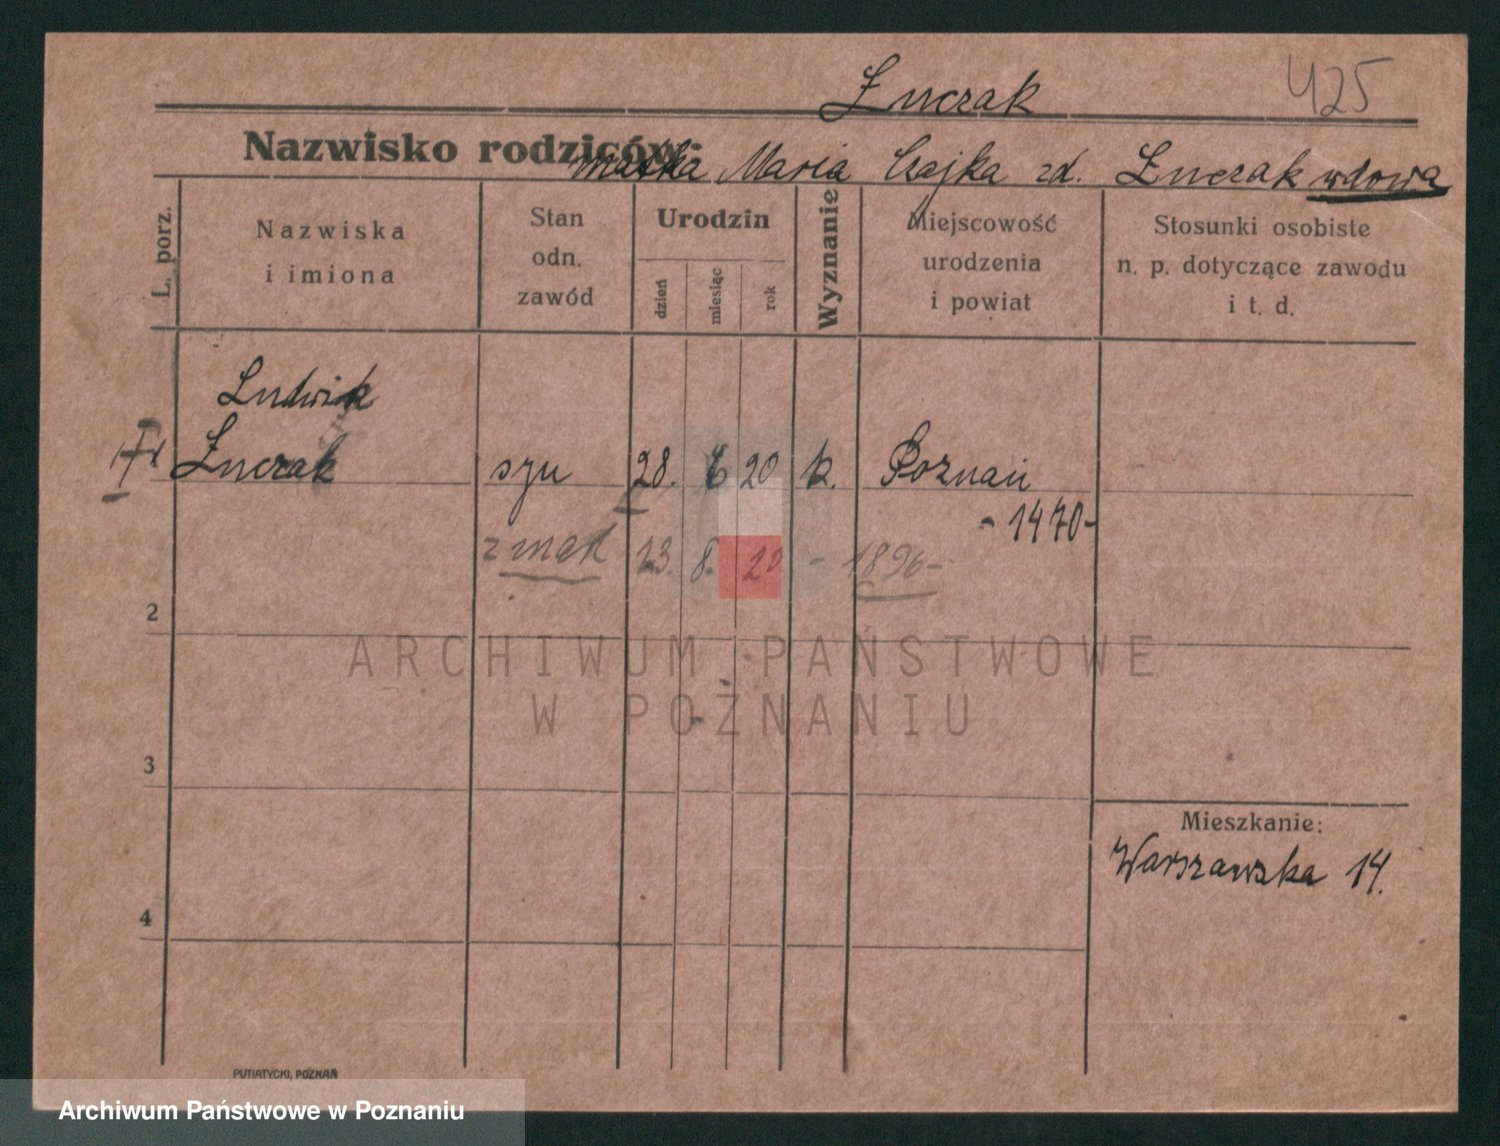 Łuczak 425
Nazwisko rodziców: matka Maria Czajka zd. Łuczak wdowa
L. porz.
Nazwiska
i imiona
Stan
odn.
zawód
Urodzin
dzień
miesiąc
rok
Wyznanie
Miejscowość
urodzenia
i powiat
Stosunki osobiste
n. p. dotyczące zawodu
i t. d.
Ludwik
Łuczak syn 28. 20 k. Poznań
- 1470 -
zmarł 23. 8. 20 - 1896 -
2
ARCHIWUM PAŃSTWOWE
W POZNANIU
3
Mieszkanie:
Warszawska 14.
4
PUTIATYCKI, POZNAŃ
Archiwum Państwowe w Poznaniu